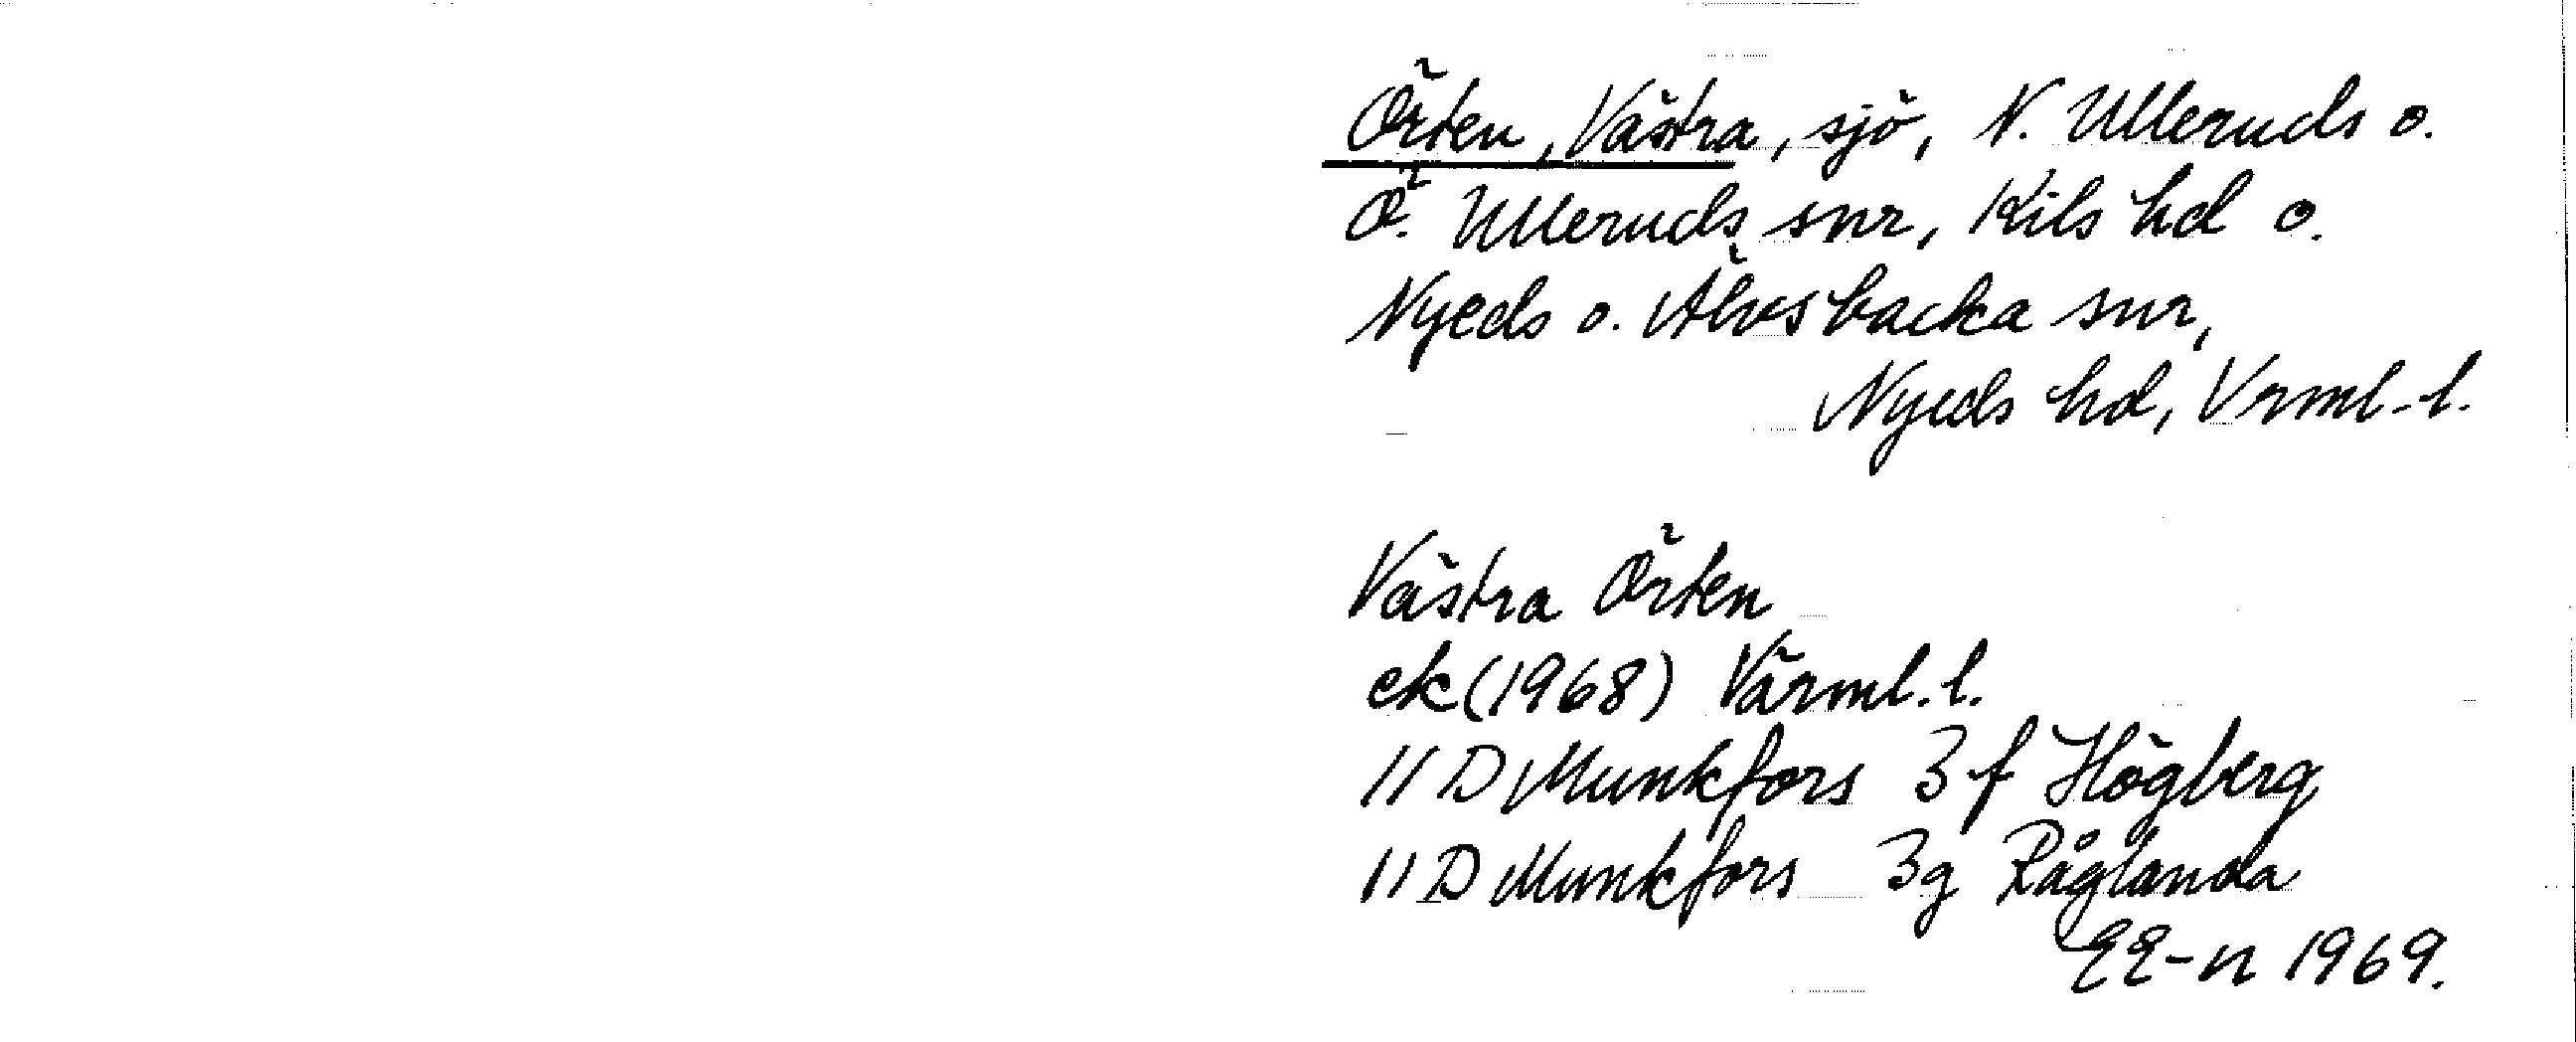 Örten, Västra, sjö, N. Ulleruds o.
Ö. Ulleruds snr, Kils hd o.
Nyeds o. Älvsbacka snr,
Nyeds hd, Vrml. l.
Västra Örten
ek (1968) Värml. l.
11 D Munkfors 3 f Högberg
11 D Munkfors 3g Råglanda
EE-n 1969.